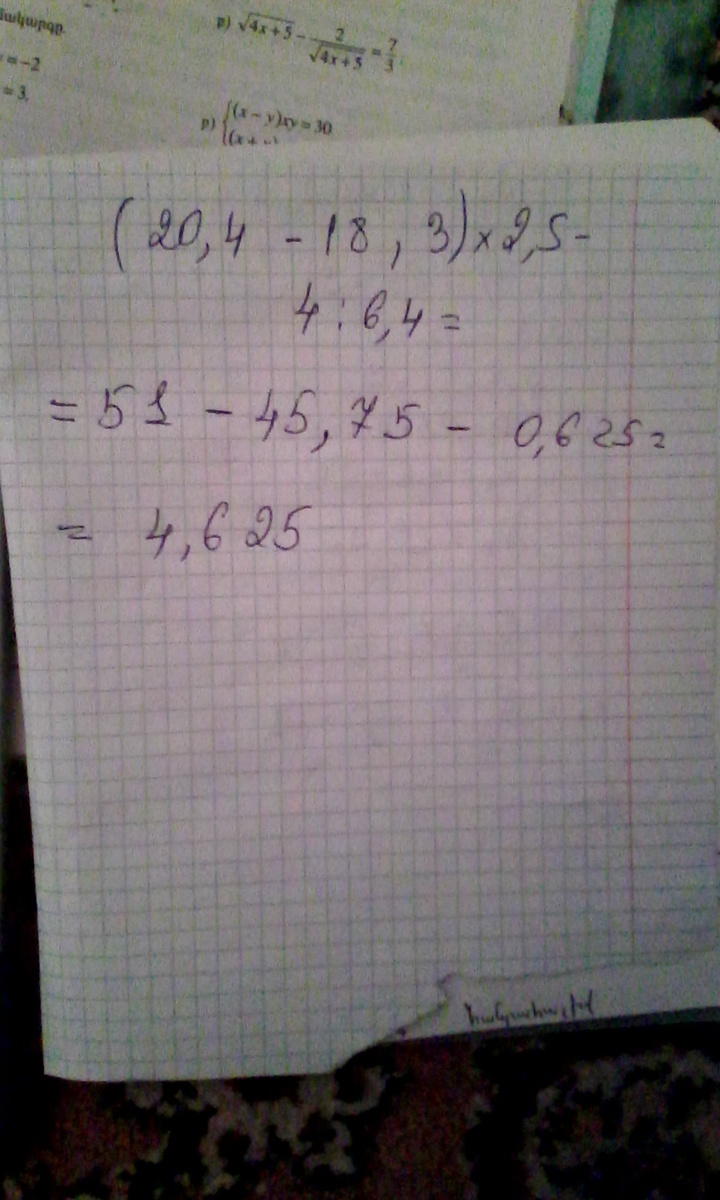 ր) √4x+5 - 2/√4x+5 = 7/3.
= -2
= 3,
ր) {(x – y)xy = 30
(20,4 - 18,3)×2,5-
4:6,4=
=51 - 45,75 - 0,625=
= 4,625